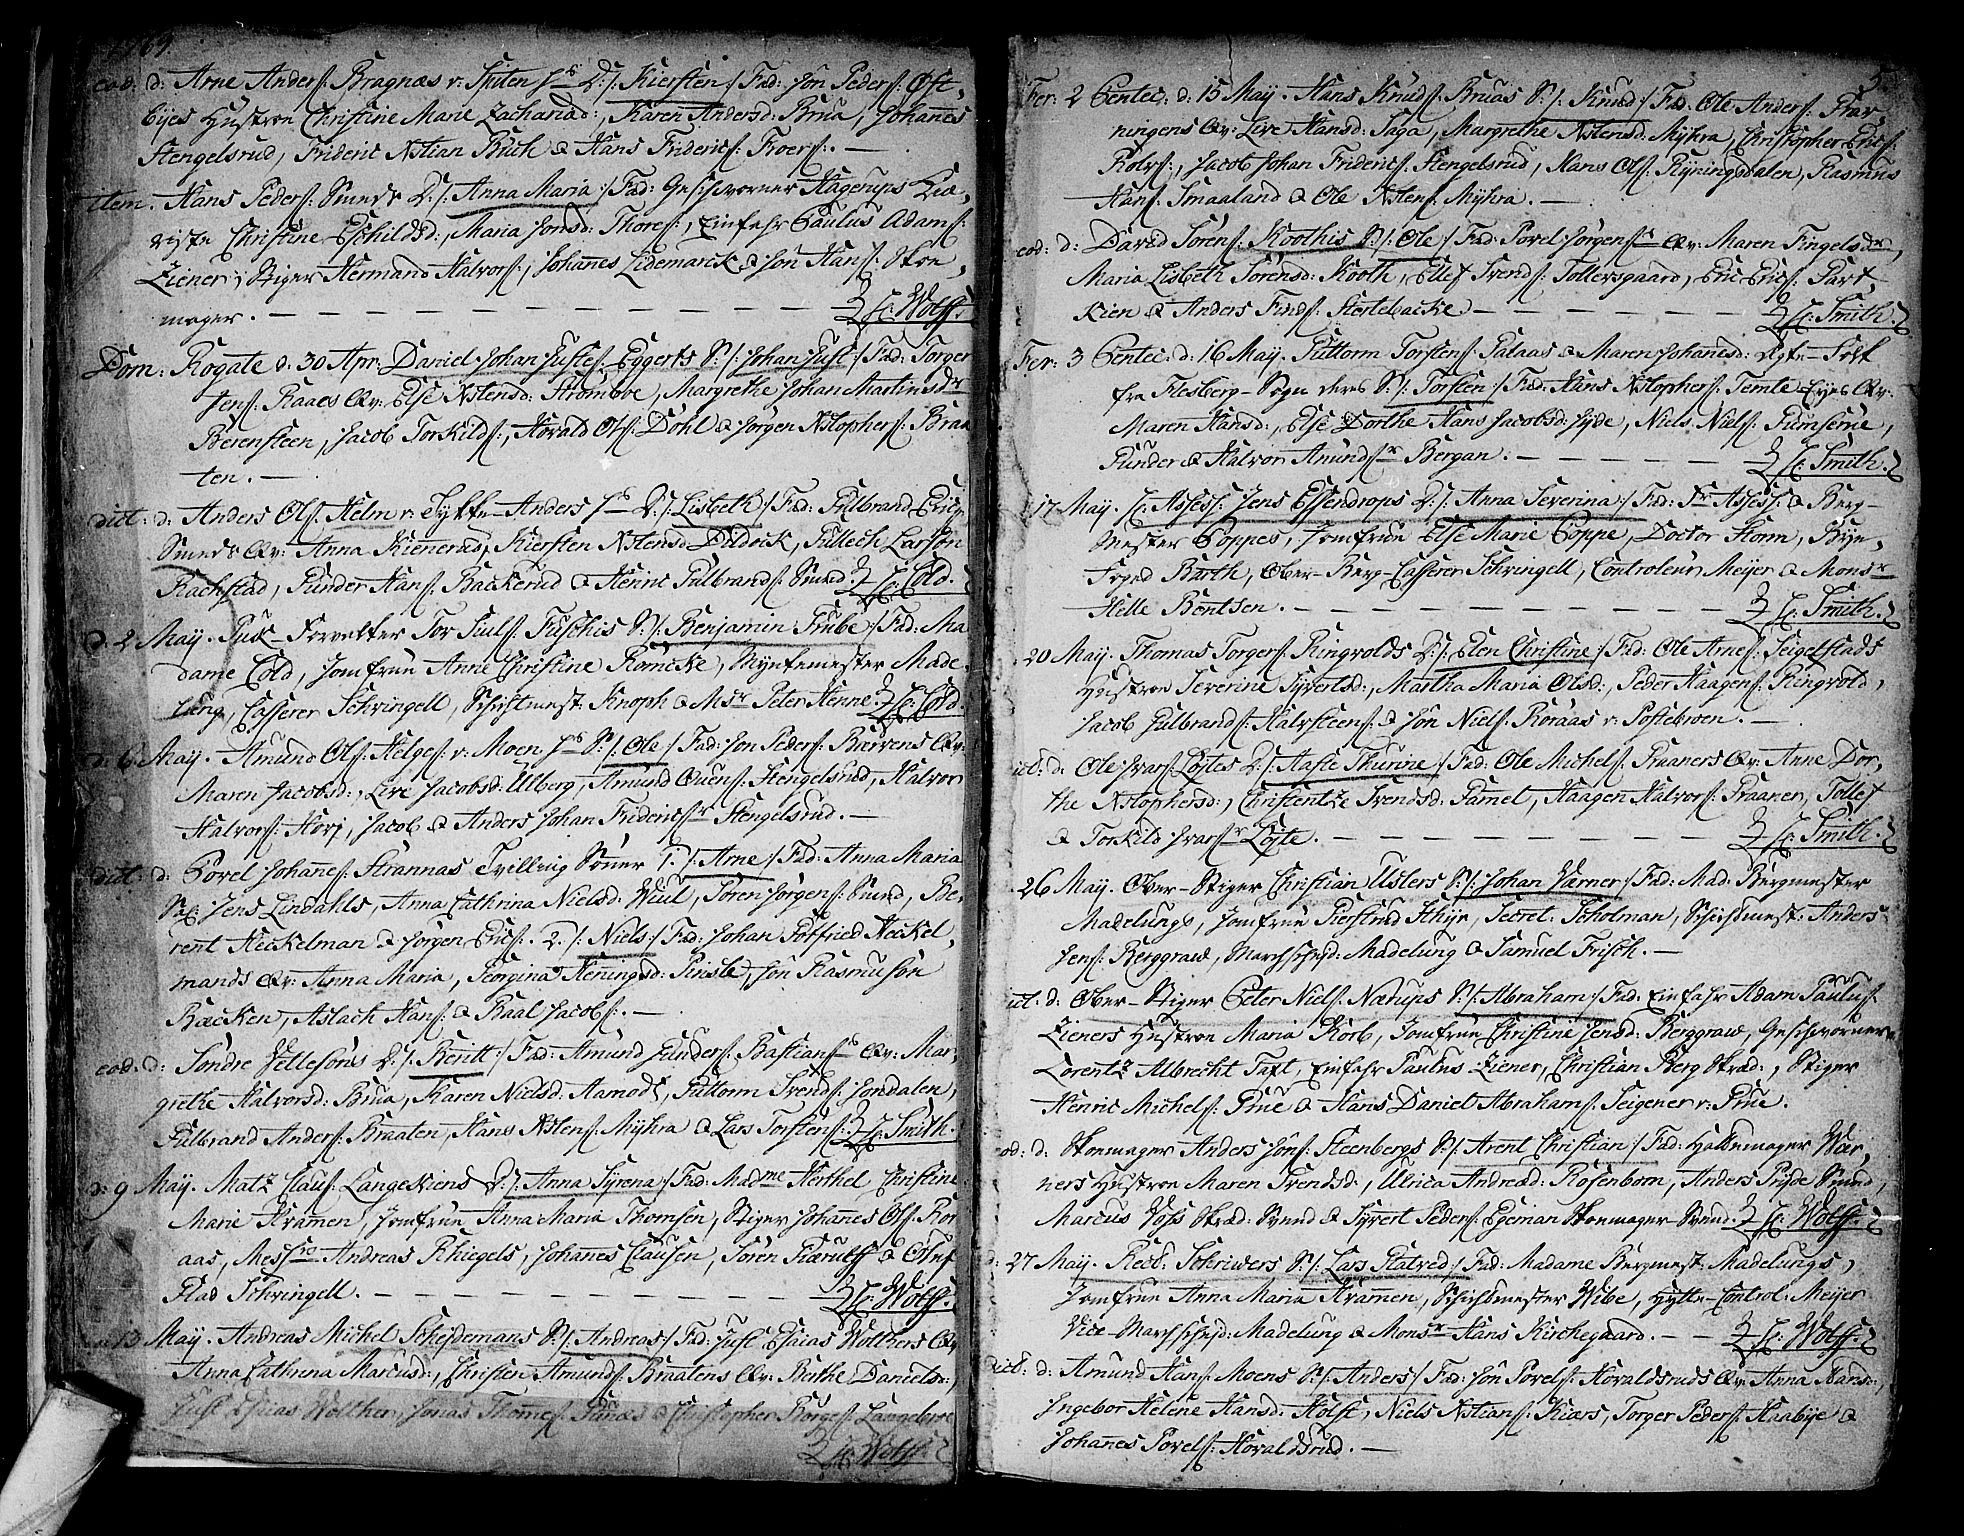 1769.
eod: d: Arne Anders: Bragnæs v: Spiten D:/: Kiersten:/ Fad: Jon Peders: Øst,
byes Hustroe Christine Marie Zachariad:, Karen Andersd: Brua, Johannes
Stengelsrud, Frideric Xstian Buch & Hans Frideric Troers:. —
item. Hans Peders: Smeds D:/: Anna Maria:/ Fad: Geschworner Hagerups
Christine Eschildsd:, Maria Jonsd: Thores:, Einfahr Paulus Adams:
Ziener, Stiger Hermand Halvors:, Johannes Lidemarck & Jon Hans: Skoe,
mager. — — — — — — Hr: Wolff.
Dom: Rogate d. 30 Apr: Daniel Johan Justes: Eggerts S:/: Johan Just:/ Fad: Torger
Jens: Raaes Qv: Else Xstensd: Stromboe, Margrethe Johan Martinsdr
Berensteen, Jacob Torkilds:, Horald Ols: Dohl & Jørgen Xstophers: Braa
ten. —
dict: d: Anders Ols: Helm v: Hytte Anders D:/: Lisbeth:/ Fad: Gulbrand Erics:
Smeds Qv: Anna Kiennerud, Kiersten Xstensd Dildock, Gullech Larssøn
Rachstad, Gunder Hans: Backerud & Henric Gulbrands: Smed. Hr: Cold.
d. 2 May. Puk-Forvalter Tor Juuls: Fuschis S:/: Benjamin Grube:/ Fad: Ma
dame Cold, Jomfrue Anne Christine Romcke, Myntemester Made,
lung, Casserer Schvingell, Schichtmest: Knoph & Msr Peter Henne. Hr: Cold.
d: 6 May. Amund Ols: Helges: v: Moen S:/: Ole:/ Fad: Jon Peders: Bærvens Qv:
Maren Jacobsd:, Live Jacobsd: Ulberg, Amund Ouens: Stengelsrud, Halvor
Halvors: Horj, Jacob & Anders Johan Fridericsr Stengelsrud. —
dict: d: Povel Johanes: Strannas Tvilling Sønner 1. /: Arne:/ Fad: Anna Maria
Jens Lindahls, Anna Cathrina Nielsd: Weul, Søren Jørgens: Smed, Be,
rent Heckelman & Jørgen Erics:. 2. /: Niels:/ Fad: Johan Gotfried Heckel,
mands Qv: Anna Maria, Georgina Heningsd: Kinste, Jon Rasmusøn
Bæcken, Aslach Hans: & Raal Jacobs:. —
eod: d: Søndre Jellesøns D:/: Beritt:/ Fad: Amund Gunders: Bastians: Qv: Mar,
grethe Halvorsd: Brua, Karen Nielsd: Aamodt, Guttorm Svends: Jondalen,
Gulbrand Anders: Braaten, Hans Xstens: Myhra & Lars Torstens: Hr: Smith.
d: 9 May. Matz Claus: Langekiens D:/: Anna Syrena:/ Fad: Madme Herthel Christine
Marie Kramen, Jomfrue Anna Maria Thomsen, Stiger Johannes Ols: Ror
aas, Messrs Andreas Rhiegels, Johanes Clausen, Søren Kiærulff & Oluf
Flad Schvingell. — — — — — — Hr: Wolff.
d: 13 May. Andreas Michel Scheydemans S:/: Andreas:/ Fad: Just Esaias Wolthers Qv
Anna Cathrina Marcusd:, Christen Amunds: Braatens Qv: Berthe Danielsd:,
Just Esaias Wolther, Jonas Thomes: & Christopher Børges: Langebroe
Hr: Wolff.
5
Fer: 2 Pentec: d: 15 May. Hans Knuds: Bruas S:/: Knud:/ Fad: Ole Anders: Græ,
ningens Qv: Live Hansd: Saga, Margrethe Xstensd: Myhra, Christopher Erics:
Rolvs:, Jacob Johan Friderics: Stengelsrud, Hans Ols: Ryningsdalen, Rasmus
Hans: Smaaland & Ole Xstens: Myhra. —
eod: d: David Sørens: Koothis S:/: Ole:/ Fad: Povel Jørgens: Qv: Maren Fingelsdr,
Maria Lisbeth Sørensd: Kooth, Ellef Svends: Tollersgaard, Eric Erics: Part
kien & Anders Finds: Stertebacke — — — — Hr: Smith.
Fer: 3 Pentec: d: 16 May. Guttorm Torstens: Palaas & Maren Johanesd: Ægte-Folk
fra Flesberg-Sogn deres S:/: Torsten:/ Fad: Hans Xstophers: Temte Eyes Qv:
Maren Hansd:, Else Dorthe Hans Jacobsd: Jyde, Niels Niels: Gumserue,
Gunder & Halvor Amundsr Bergan. — — — — Hr: Smith.
17 May. Hr: Assess: Jens Essendrops D:/: Anna Severina:/ Fad: Fr Assess: & Berg-
mester Poppes, Jomfrue Else Marie Poppe, Doctor Storm, Bye,
Foged Barth, Ober-Berg-Casserer Schvingell, Controleur Meyer & Monsr
Helle Bentsen. — — — — — Hr: Smith.
20 May. Thomas Torgers: Ringvolds D:/: Elen Christine:/ Fad: Ole Arnes: Teigelstads
Hustroe Severine Syvertsd:, Martha Maria Olsd:, Peder Haagens: Ringvold,
Jacob Gulbrands: Halvsteens: & Jon Niels: Roraas v: Postebroen. —
ut: d: Ole Ivars: Løytes D:/: Aaste Thurine:/ Fad: Ole Michels: Graaners Qv: Anne Dor,
the Xstophersd:, Christentze Svendsd: Gamel, Haagen Halvors: Graaner, Tollef
& Torkild Ivarsr Løyte. — — — — — Hr: Smith.
26 May. Ober-Stiger Christian Uslers S:/: Johan Værner:/ Fad: Mad: Bergmester
Madelungs, Jomfrue Gierstrud Schyr, Secret: Stokolman, Schichtmest: Anders
Jens: Berggraw, Marchscheid: Madelung & Samuel Frisch. —
ut: d: Ober-Stiger Peter Niels: Nærups S:/: Abraham:/ Fad: Einfahr Adam Paulus:
Zieners Hustroe Maria Korb, Jomfrue Christine Jensd: Berggraw, Geschworner
Lorentz Albrecht Taxt, Einfahr Paulus Ziener, Christian Berg Skræd:, Stiger
Henric Michels: Grue & Hans Daniel Abrahams: Teigener v: Grue.
eod: d: Skoemager Anders Jons: Steenbergs S:/: Arent Christian:/ Fad: Hattemager Wær,
ners Hustroe Maren Svendsd:, Ulrica Andread: Rosenborn, Anders Pryde Smed,
Marcus Voss Skræd: Svend & Syvert Peders: Egeman Skoemager-Svend. Hr: Wolff.
d: 27 May. Resd: Schriwers S:/: Lars Hatved:/ Fad: Madame Bergmest: Madelungs,
Jomfrue Anna Maria Kramen, Schichtmester Wibe, Hytte-Control: Meijer
Vice-Marchscheid: Madelung & Monsr Hans Kirchegaard. — — Hr: Wolff.
dict: d: Amund Hans: Moens S:/: Anders:/ Fad: Jon Povels: Horaldsruds Qv: Anna Hansd:,
Ingebor Helene Hansd: Holst, Niels Xstians: Kiærs, Torger Peders: Haabye &
Johannes Povels: Horaldsrud. —